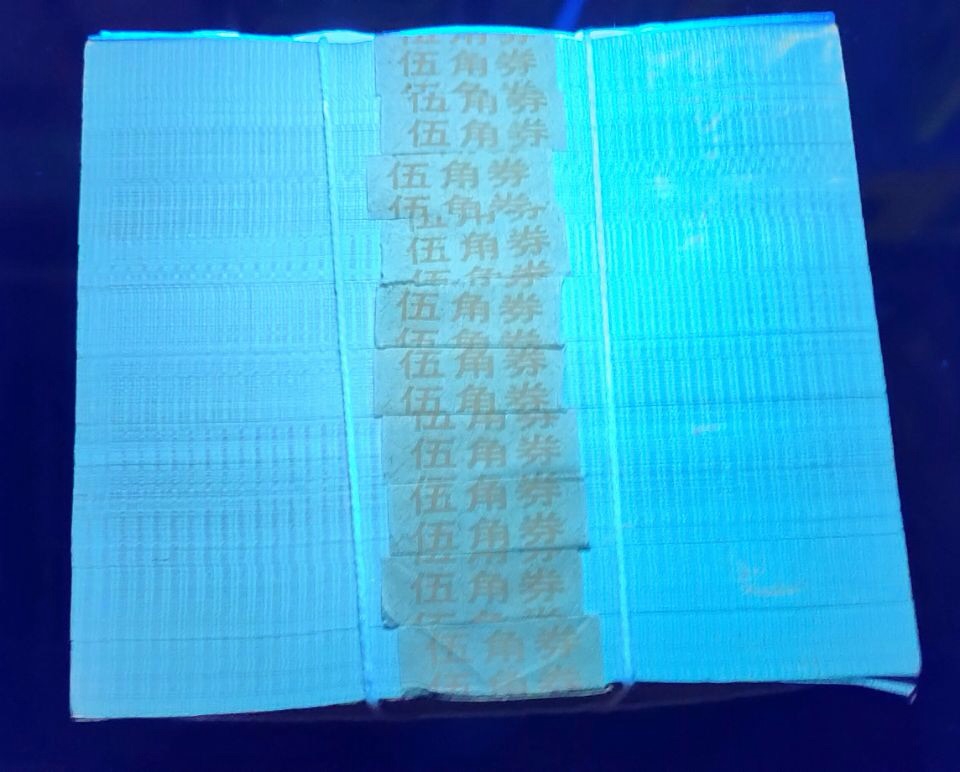 伍角券
伍角券
伍角券
伍角券
伍角券
伍角券
伍角券
伍角券
伍角券
伍角券
伍角券
伍角券
伍角券
伍角券
伍角券
伍角券
伍角券
伍角券